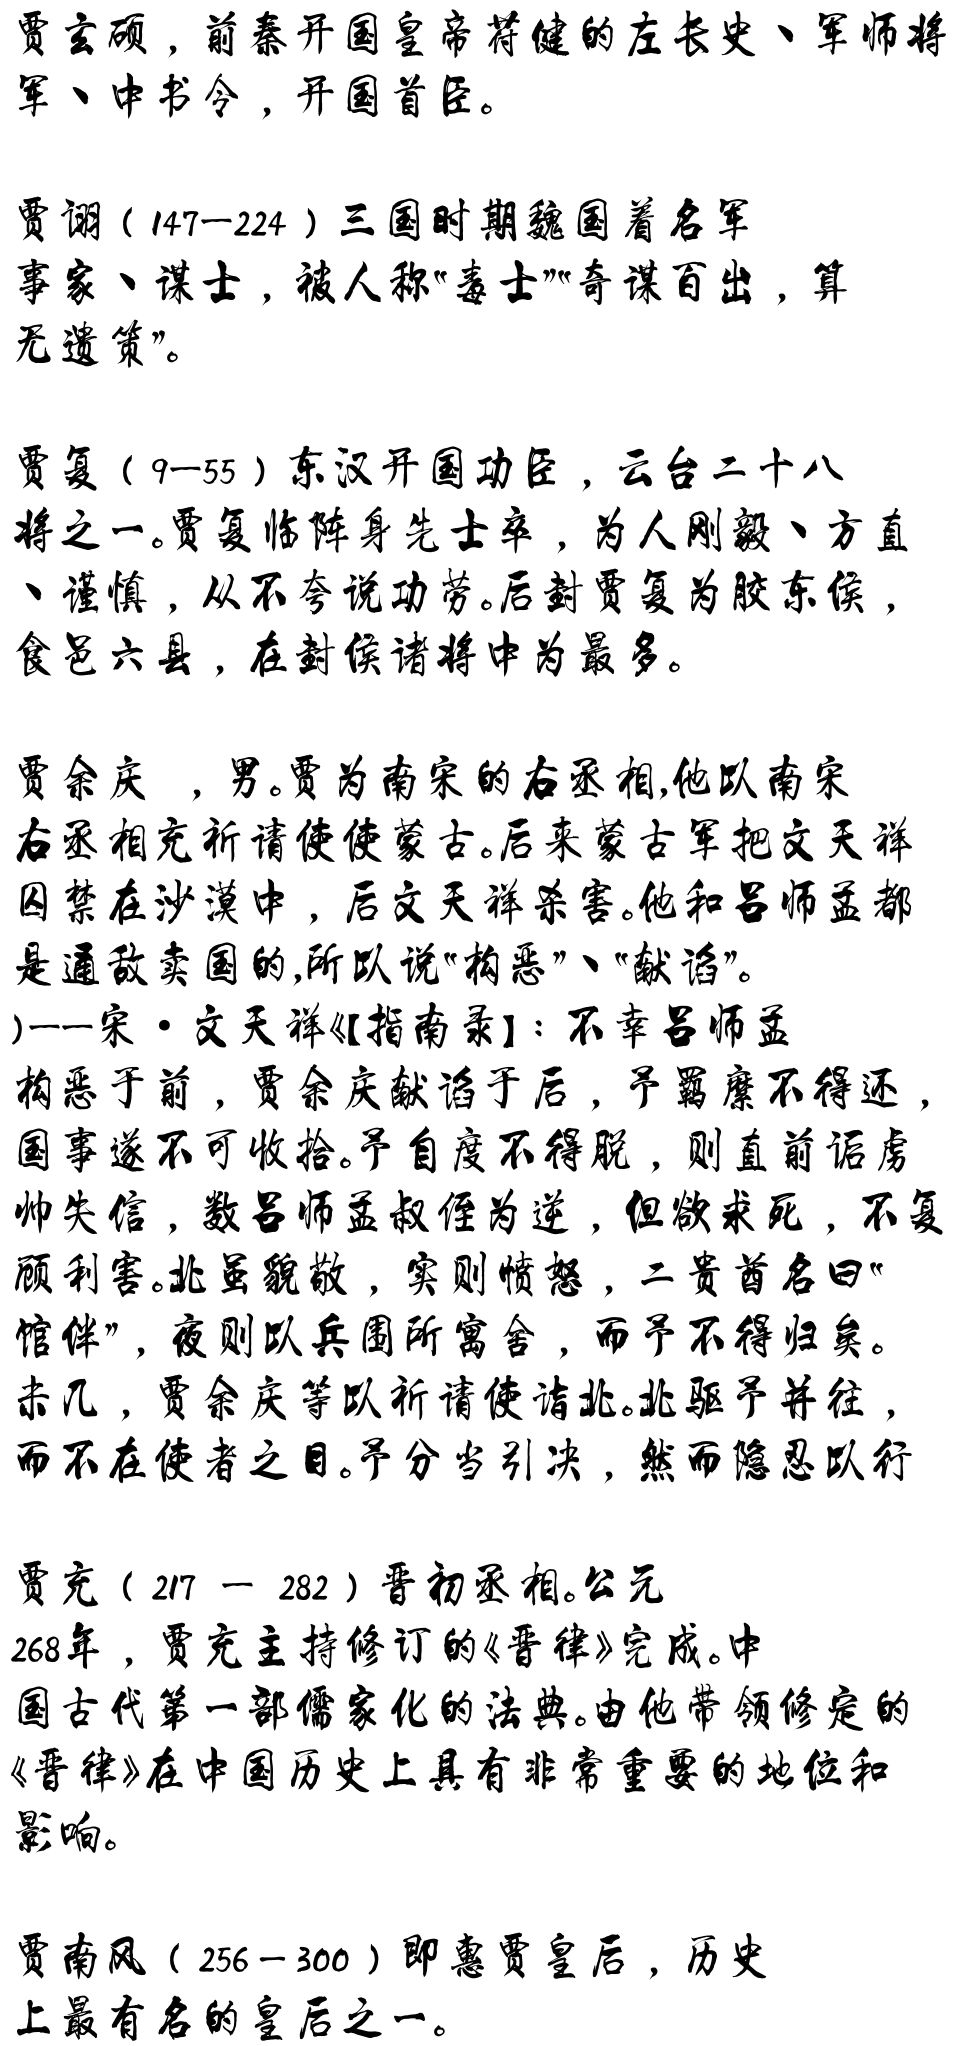 贾玄硕，前秦开国皇帝苻健的左长史、军师将
军、中书令，开国首臣。
贾诩（147—224）三国时期魏国着名军
事家、谋士，被人称“毒士”“奇谋百出，算
无遗策”。
贾复（9—55）东汉开国功臣，云台二十八
将之一。贾复临阵身先士卒，为人刚毅、方直
、谨慎，从不夸说功劳。后封贾复为胶东侯，
食邑六县，在封侯诸将中为最多。
贾余庆 ，男。贾为南宋的右丞相,他以南宋
右丞相充祈请使使蒙古。后来蒙古军把文天祥
囚禁在沙漠中，后文天祥杀害。他和吕师孟都
是通敌卖国的,所以说“构恶”、“献谄”。
)——宋·文天祥《【指南录】：不幸吕师孟
构恶于前，贾余庆献谄于后，予羁縻不得还，
国事遂不可收拾。予自度不得脱，则直前诟虏
帅失信，数吕师孟叔侄为逆，但欲求死，不复
顾利害。北虽貌敬，实则愤怒，二贵酋名曰“
馆伴”，夜则以兵围所寓舍，而予不得归矣。
未几，贾余庆等以祈请使诣北。北驱予并往，
而不在使者之目。予分当引决，然而隐忍以行
贾充（217 — 282）晋初丞相。公元
268年，贾充主持修订的《晋律》完成。中
国古代第一部儒家化的法典。由他带领修定的
《晋律》在中国历史上具有非常重要的地位和
影响。
贾南风（256－300）即惠贾皇后，历史
上最有名的皇后之一。